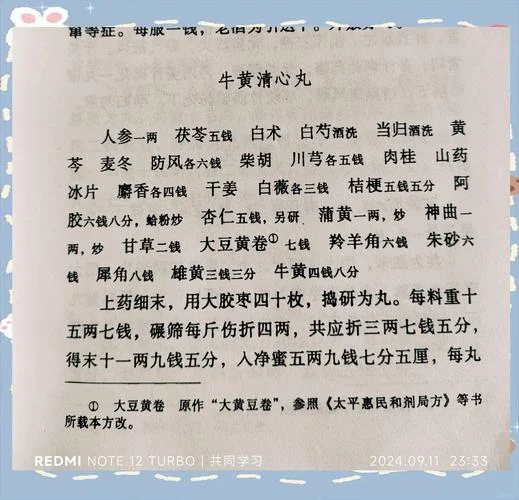 牛黄清心丸
人参一两 茯苓五钱 白术 白芍酒洗 当归酒洗 黄
芩 麦冬 防风各六钱 柴胡 川芎各五钱 肉桂 山药
冰片 麝香各四钱 干姜 白薇各三钱 桔梗五钱五分 阿
胶六钱八分，蛤粉炒 杏仁五钱，另研 蒲黄一两，炒 神曲一
两，炒 甘草二钱 大豆黄卷① 七钱 羚羊角六钱 朱砂六
钱 犀角八钱 雄黄三钱三分 牛黄四钱八分
上药细末，用大胶枣四十枚，捣研为丸。每料重十
五两七钱，碾筛每斤伤折四两，共应折三两七钱五分，
得末十一两九钱五分，入净蜜五两九钱七分五厘，每丸
① 大豆黄卷 原作“大黄豆卷”，参照《太平惠民和剂局方》等书
所载本方改。
REDMI NOTE 12 TURBO | 共同学习
2024.09.11 23:33